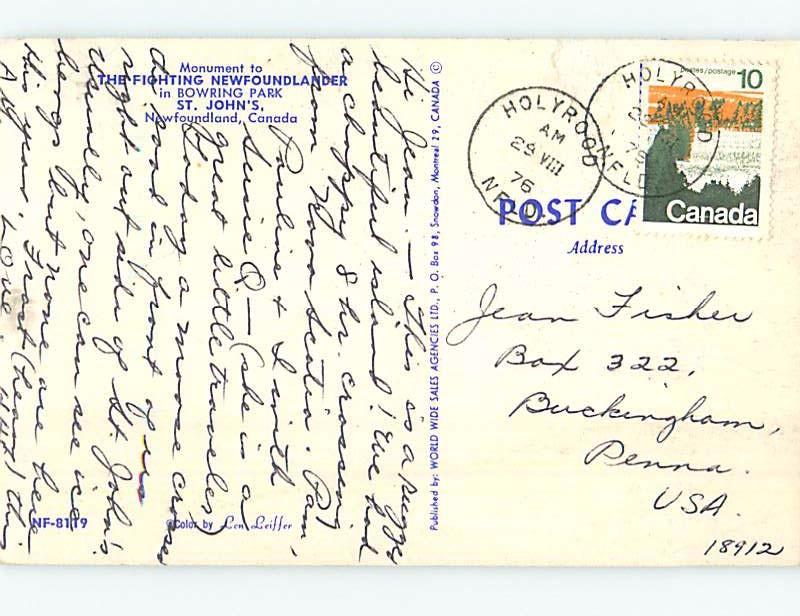 Monument to
THE FIGHTING NEWFOUNDLANDER
in BOWRING PARK
ST. JOHN'S,
Newfoundland, Canada
Hi Jean — This is a
beautiful island! We had
a choppy 8 hr. crossing
from Nova Scotia. Pam,
Pauline & I with
Susie Q — (she is a
great little traveler)
Today a moose crosses
road in front of us
right out side of St. John's.
Usually, one can see ice
bergs but none are here
this year. Frost (heavy) this
A.M. Love,
NF-8119
©Color by Len Leiffer
Published by: WORLD WIDE SALES AGENCIES LTD., P. O. Box 98, Snowdon, Montreal 29, CANADA ©
HOLYROOD
AM
29 VIII
76
NFLD
HOLYR D
76
NFLD
postes/postage 10
Canada
POST CA
Address
Jean Fisher
Box 322,
Buckingham,
Penna.
USA.
18912